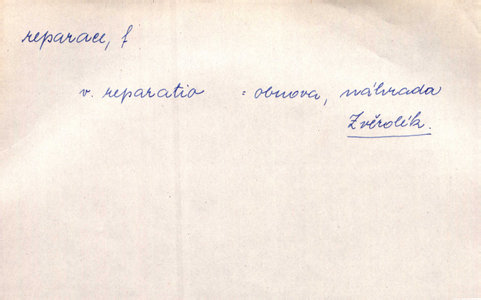 reparace, f
v. reparatio : obnova, náhrada
Zvěrolék.